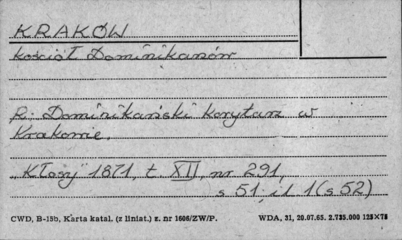 KRAKÓW
kościół Dominikanów
R: Dominikański korytarz w
Krakowie.
„Kłosy" 1871, t. XII, nr 291,
s 51, il 1 (s 52)
CWD, B-15b, Karta katal. (z liniat.) z. nr 1606/ZW/P. WDA, 31, 20.07.65. 2.735.000 125×75